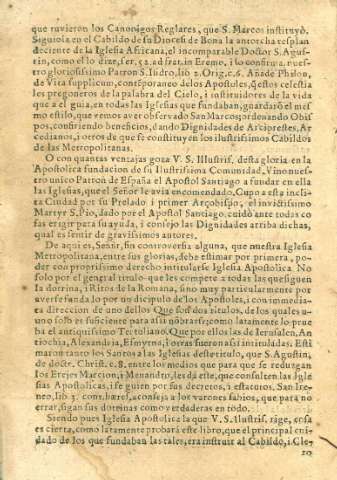 que tuvieron los Canonigos Reglares, que S. Marcos instituyò.
Siguiola en el Cabildo de su Diocesi de Bona la antorcha resplan
deciente de la Iglesia Africana, el incomparable Doctor S. Agus-
tin, como el lo dize, ser, 52. ad frat. in Eremo, i lo confirma nues-
tro gloriosissimo Patron S. Isidro, lib 2. Orig. c. 6. Añade Philon,
de Vita supplicum, contemporaneo de los Apostoles, q̃ estos celestia
les pregoneros de la palabra del Cielo, i instituidores de la vida
que a el guia, en todas las Iglesias que fundaban, guardarō el mes
mo estilo, que vemos aver observado San Marcos; ordenando Obis
pos, confiriendo beneficios, dando Dignidades de Arciprestes, Ar
cedianos, i otros de que se constituyen los ilustrissimos Cabildos
de las Metropolitanas.
O con quantas ventajas goza V. S. Illustris. desta gloria en la
Apostolica fundacion de su Ilustrissima Comunidad. Vino nues-
tro unico Patron de España el Apostol Santiago a fundar en ella
las Iglesias, que el Señor le avia encomendado, Cupo a esta incli-
ta Ciudad por su Prelado i primer Arçobispo, el invictissimo
Martyr S. Pio, dado por el Apostol Santiago, cuidò ante todas co
fas erigir para su ayuda, i consejo las Dignidades arriba dichas,
qual es sentir de gravissimos autores.
De aqui es, Señor, sin controversia alguna, que nuestra Iglesia
Metropolitana, entre sus glorias, debe estimar por primera, po-
der con propriissimo derecho intitularse Iglesia Apostolica. No
solo por el general titulo que les compete a todas las que siguen
la dotrina, i Ritos de la Romana, sino muy particularmente por
averse fundado por un dicipulo de los Apostoles, i con immedia-
ta direccion de uno dellos. Que sõ estos dos titulos, de los quales u-
uno solo es suficiente para assi nõbrarse; como latamente lo prue
ba el antiquissimo Tertuliano. Que por ellos las de Ierusalen, An
tiochia, Alexandria, Esmyrna, i otras fueron assi intituladas. Esti
maron tanto los Santos a las Iglesias deste titulo, que S. Agustin,
de doctr. Christi. c. 8. entre los medios que para que se reduzgan
los Erejes Marcion, i Menandro, les dà este, que consulten las Igle
sias Apostolicas, i se guien por sus decretos, i estatutos. San Ire-
neo, lib 3. cont. haref. aconseja a los varones sabios, que para no
errar, sigan sus dotrinas como verdaderas en todo.
Siendo pues Iglesia Apostolica la que V. S. Ilustris. rige, cosa
es cierta, como latamente probarà este libro, que el principal cui-
dado de los que fundaban las tales, era instruir al Cabildo, i Cle-
ro